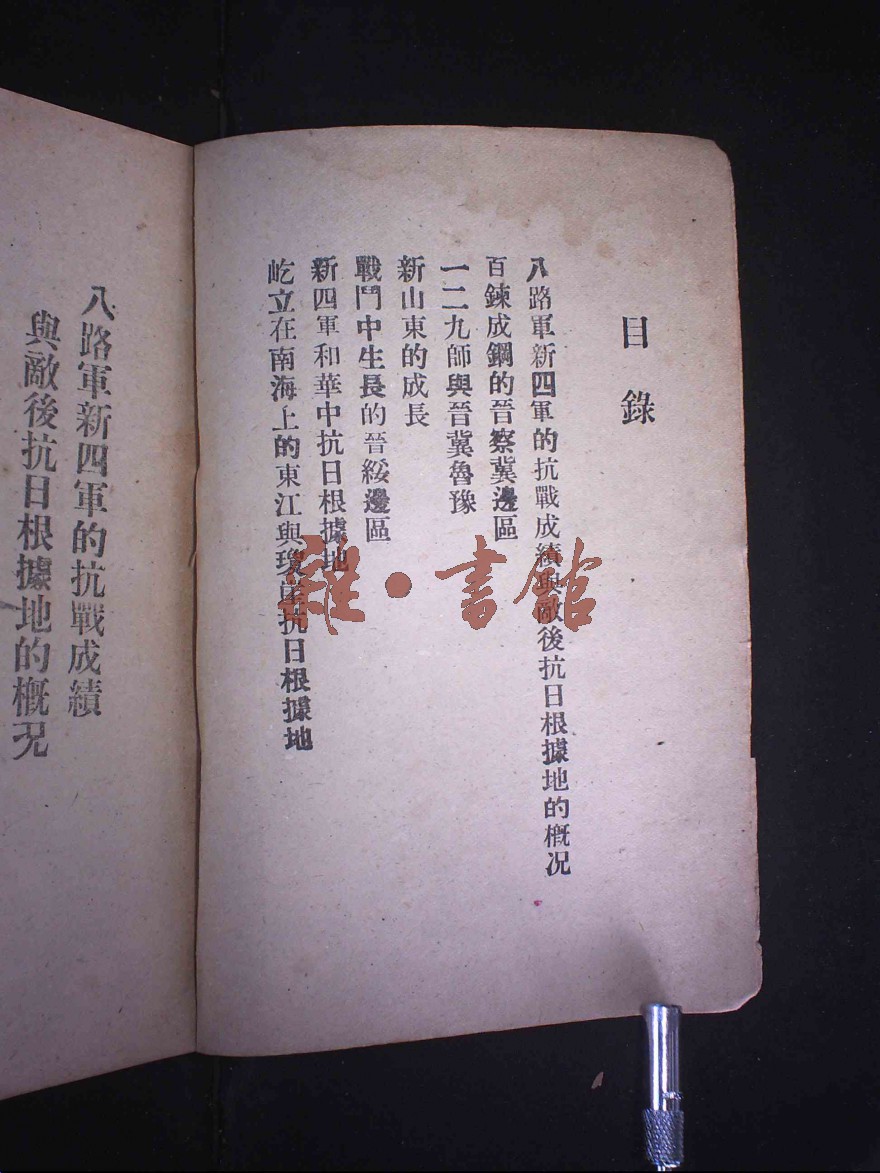 目錄
八路軍新四軍的抗戰成績與敵後抗日根據地的概況
百鍊成鋼的晉察冀邊區
一二九師與晉冀魯豫
新山東的成長
戰鬥中生長的晉綏邊區
新四軍和華中抗日根據地
屹立在南海上的東江與瓊崖抗日根據地
八路軍新四軍的抗戰成績
與敵後抗日根據地的概況
雜·書館